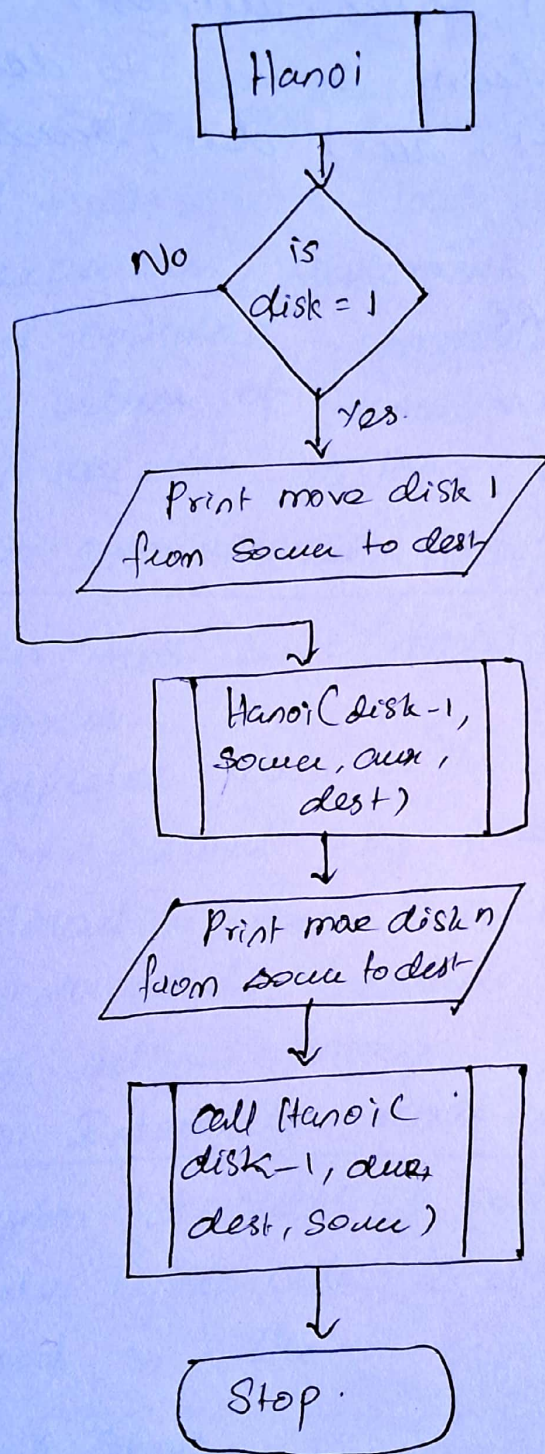 Hanoi
is
disk = 1
No
Yes.
Print move disk 1
from source to dest
Hanoi(disk-1,
source, aux,
dest)
Print move disk n
from source to dest
call Hanoi(
disk-1, aux,
dest, source)
Stop.